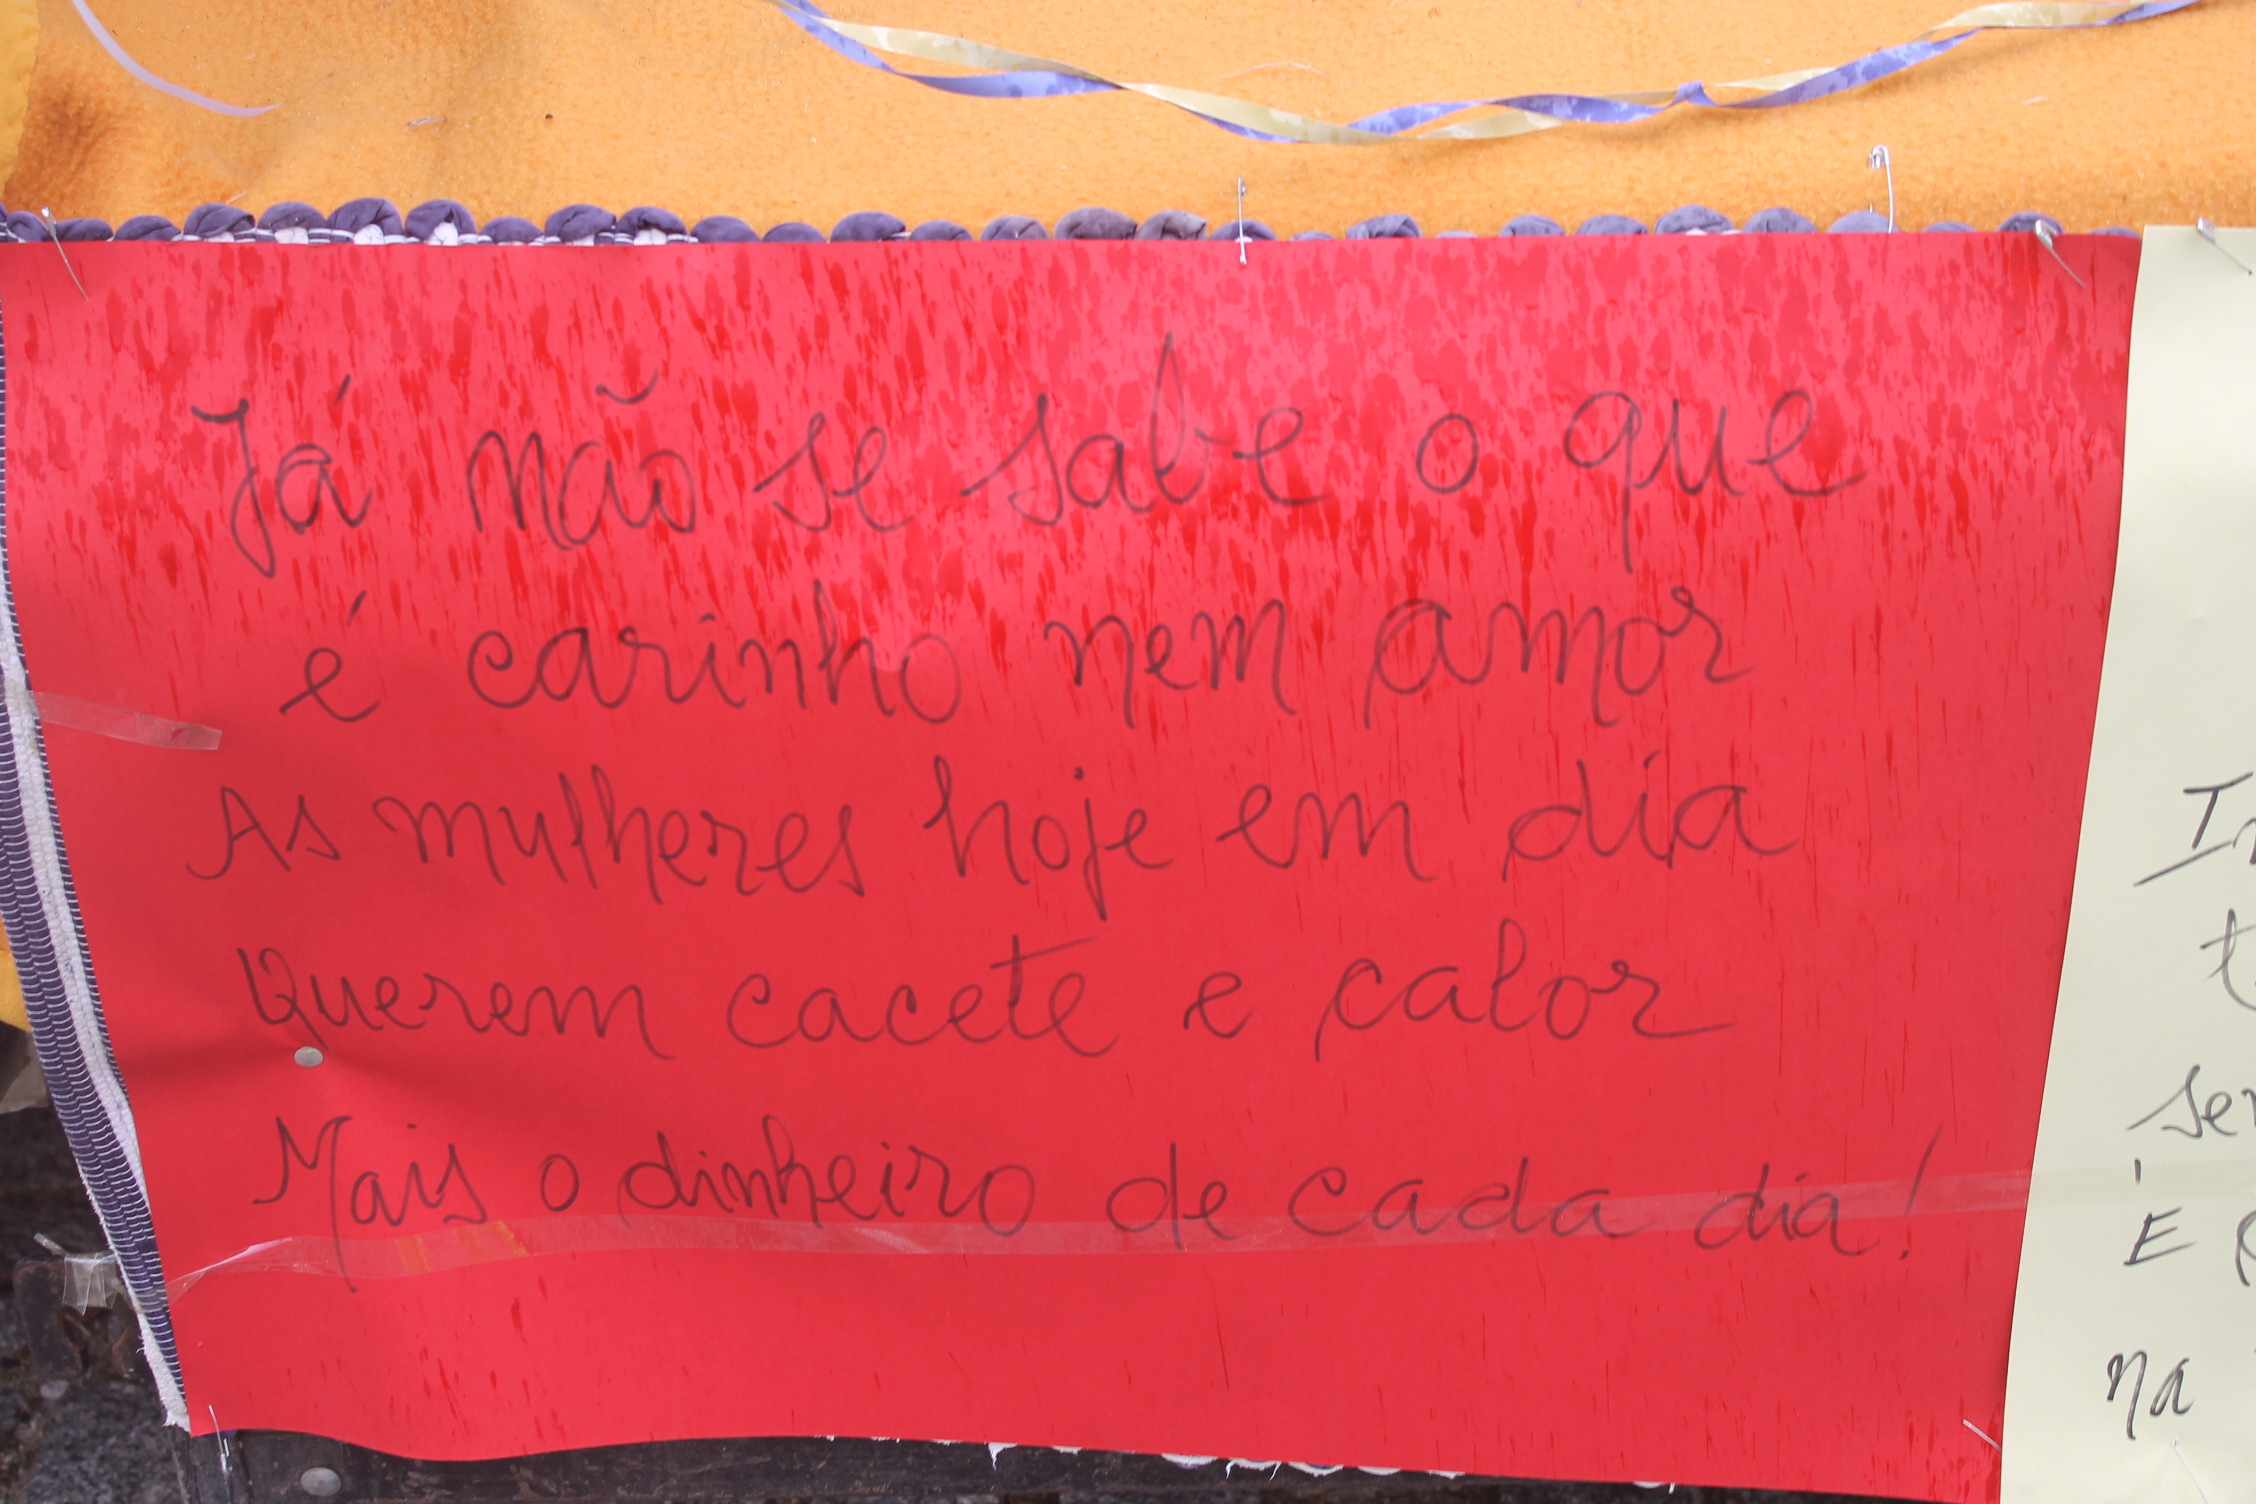 Já não se sabe o que
é carinho nem amor
As mulheres hoje em dia
Querem cacete e calor
Mais o dinheiro de cada dia!
É
na